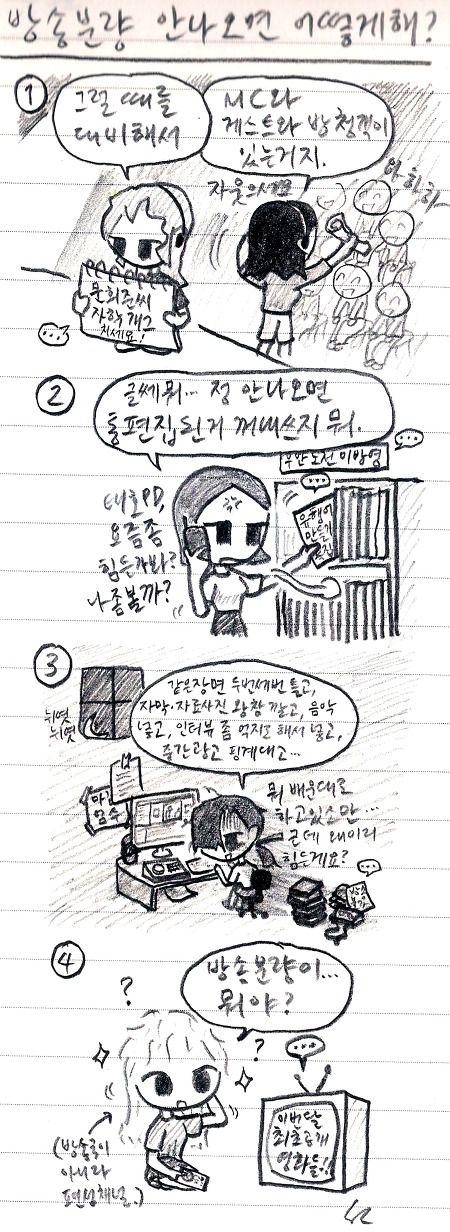 방송분량 안나오면 어떻게해?
①
그럴 때를
대비해서
MC와
게스트와 방청객이
있는거지.
아하하~
문희준씨
자학개그
치세요!
②
글쎄뭐... 정 안나오면
통편집된거 꺼내쓰지 뭐.
무한도전 미방영
유행어
만들기
태호PD,
요즘좀
힘든가봐?
나좀볼까?
③
같은장면 두번세번 틀고,
자막·자료사진 왕창 깔고, 음악
넣고, 인터뷰 좀 억지로 해서 넣고,
중간광고 핑계대고...
뉘엿
뉘엿
마감
엄수
뭐 배운대로
하고있소만...
근데 왜이리
힘든게요?
방송
불가
④
방송분량이...
뭐야?
?
?
(방송국이
아니라
편성채널.)
이번달
최초공개
영화들!!